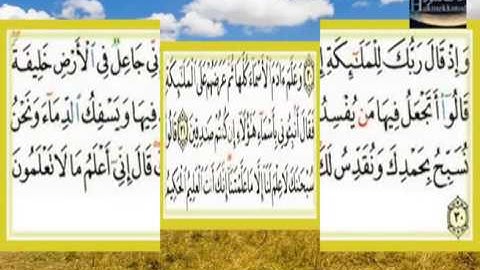 وَإِذْ قَالَ رَبُّكَ لِلْمَلَٰٓئِكَةِ إِ
قَالُوٓا۟ أَتَجْعَلُ فِيهَا مَن يُفْسِدُ
نُسَبِّحُ بِحَمْدِكَ وَنُقَدِّسُ لَكَ
٣٠
٣٠ وَعَلَّمَ ءَادَمَ ٱلْأَسْمَآءَ كُلَّهَا ثُمَّ عَرَضَهُمْ عَلَى ٱلْمَلَٰٓئِكَةِ
فَقَالَ أَنۢبِـُٔونِى بِأَسْمَآءِ هَٰٓؤُلَآءِ إِن كُنتُمْ صَٰدِقِينَ ٣١ قَالُوا۟
سُبْحَٰنَكَ لَا عِلْمَ لَنَآ إِلَّا مَا عَلَّمْتَنَآ إِنَّكَ أَنتَ ٱلْعَلِيمُ ٱلْحَكِيمُ
نِّى جَاعِلٌ فِى ٱلْأَرْضِ خَلِيفَةً
فِيهَا وَيَسْفِكُ ٱلدِّمَآءَ وَنَحْنُ
قَالَ إِنِّىٓ أَعْلَمُ مَا لَا تَعْلَمُونَ